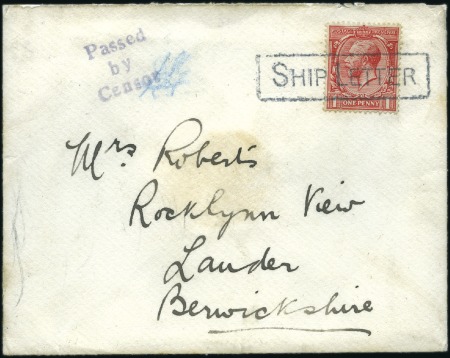 Passed
by
Censor
SHIP LETTER
ONE PENNY
Mrs Roberts
Rocklynn View
Lauder
Berwickshire